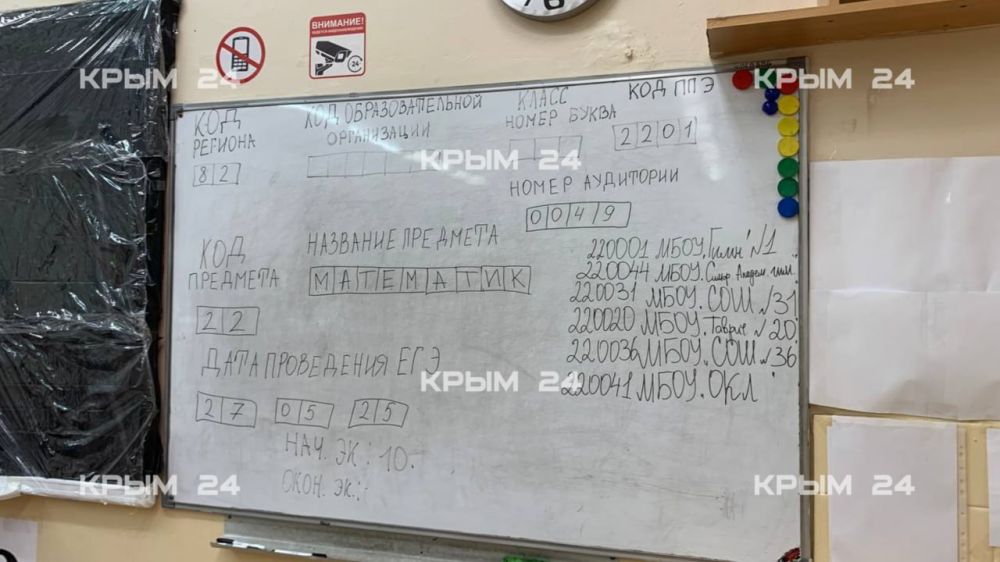 ВНИМАНИЕ!
ВЕДЕТСЯ ВИДЕОНАБЛЮДЕНИЕ
24
КРЫМ 24
КРЫМ 24
КОД РЕГИОНА
82
КОД ОБРАЗОВАТЕЛЬНОЙ
ОРГАНИЗАЦИИ
КЛАСС
НОМЕР БУКВА
КОД ППЭ
2201
КРЫМ 24
НОМЕР АУДИТОРИИ
0049
КОД
ПРЕДМЕТА
22
НАЗВАНИЕ ПРЕДМЕТА
МАТЕМАТИК
220001 МБОУ. Гимн №1
220044 МБОУ. Симф Академ. гим.
220031 МБОУ. СОШ №31
220020 МБОУ. Таврич №20
220036 МБОУ. СОШ №36
220041 МБОУ. ОКЛ
ДАТА ПРОВЕДЕНИЯ ЕГЭ
КРЫМ 24
27 05 25
НАЧ. ЭК.: 10.
ОКОН. ЭК.:
КРЫМ 24
КРЫМ 24